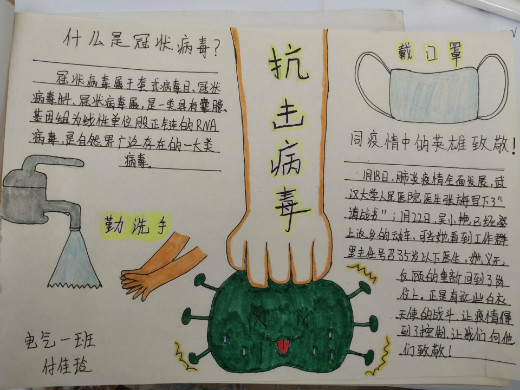 什么是冠状病毒?
冠状病毒属于套式病毒目、冠状
病毒科、冠状病毒属,是一类具有囊膜、
基因组为线性单位股正链的RNA
病毒,是自然界广泛存在的一大类
病毒
抗击病毒
戴口罩
向疫情中的英雄致敬!
1月18日,肺炎疫情全面发展,武
汉大学人民医院医生张旃写下了"
请战书";1月22日,吴小艳已经登
上返乡的动车,可当她看到工作群
里主任号召35岁以下医生,她义无
反顾的重新回到了岗
位上,正是有这些白衣
天使的战斗,让疫情得
到了控制,让我们向他
们致敬!
勤洗手
电气一班